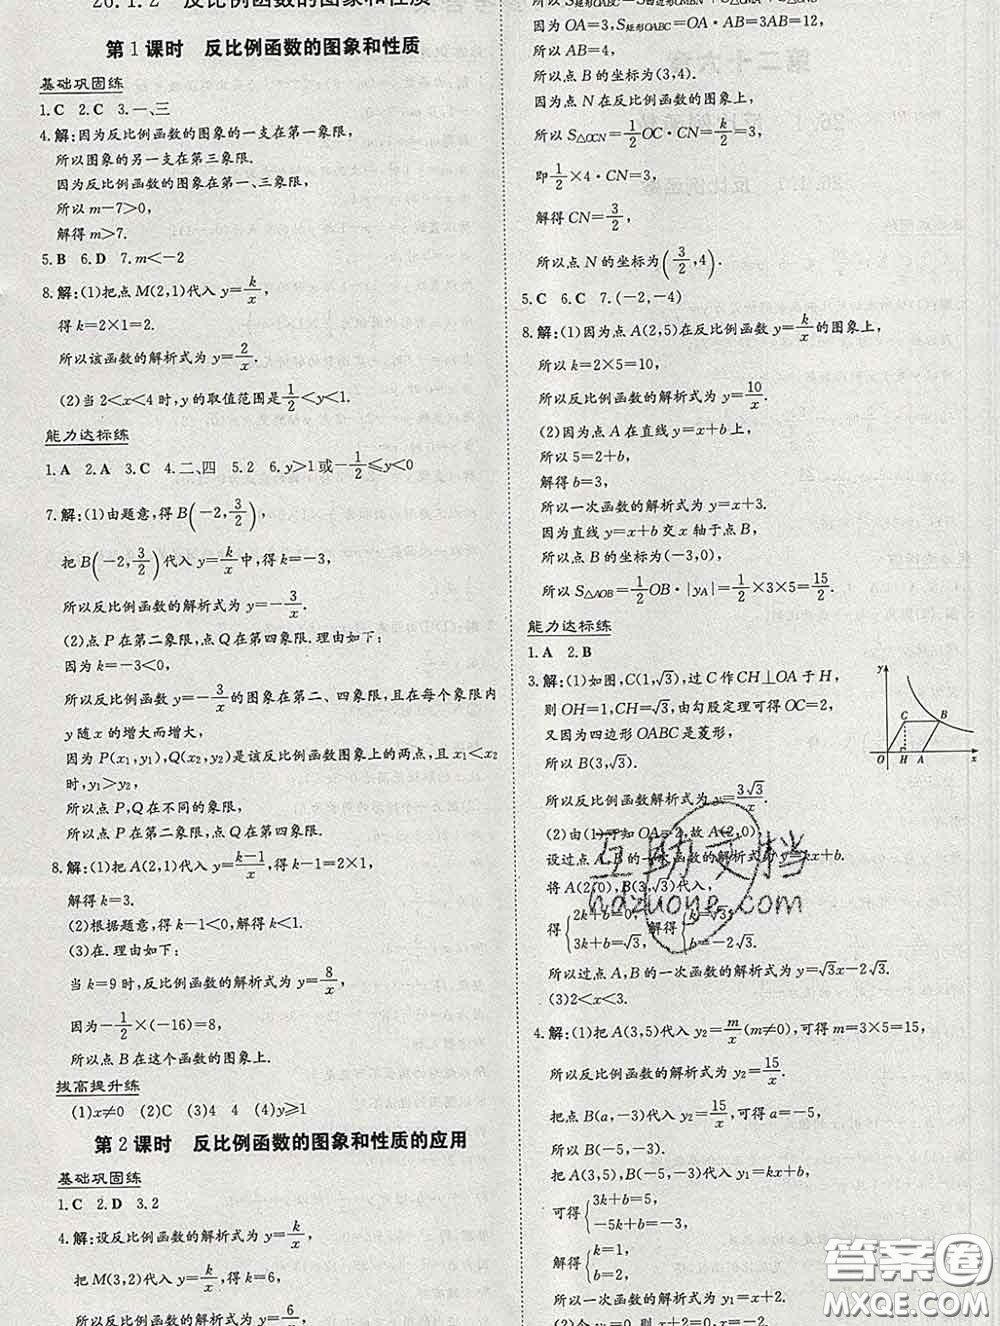 26.1.2 反比例函数的图象和性质
第1课时 反比例函数的图象和性质
基础巩固练
1.C 2.C 3.一、三
4.解:因为反比例函数的图象的一支在第一象限,
所以图象的另一支在第三象限.
因为反比例函数的图象在第一、三象限,
所以 m-7>0,
解得 m>7.
5.B 6.D 7.m<-2
8.解:(1)把点 M(2,1)代入 y=k/x,
得 k=2×1=2.
所以该函数的解析式为 y=2/x.
(2)当 2<x<4 时,y 的取值范围是 1/2<y<1.
能力达标练
1.A 2.A 3.C 4.二、四 5.2 6.y>1或-1/2≤y<0
7.解:(1)由题意,得 B(-2,3/2),
把 B(-2,3/2)代入 y=k/x中,得 k=-3,
所以反比例函数的解析式为 y=-3/x.
(2)点 P 在第二象限,点 Q 在第四象限.理由如下:
因为 k=-3<0,
所以反比例函数 y=-3/x的图象在第二、四象限,且在每个象限内
y 随 x 的增大而增大,
因为 P(x₁,y₁),Q(x₂,y₂)是该反比例函数图象上的两点,且 x₁<x₂
时,y₁>y₂,
所以点 P,Q 在不同的象限,
所以点 P 在第二象限,点 Q 在第四象限.
8.解:(1)把 A(2,1)代入 y=k-1/x,得 k-1=2×1,
解得 k=3.
(2)根据题意,得 k-1<0,解得 k<1.
(3)在.理由如下:
当 k=9 时,反比例函数的解析式为 y=8/x,
因为-1/2×(-16)=8,
所以点 B 在这个函数的图象上.
拔高提升练
(1)x≠0 (2)C (3)4 4 (4)y≥1
第2课时 反比例函数的图象和性质的应用
基础巩固练
1.C 2.D 3.2
4.解:设反比例函数的解析式为 y=k/x,
把 M(3,2)代入 y=k/x,得 k=6,
所以反比例函数的解析式为 y=6/x.
因为 OA=3,S矩形OABC
所以 AB=4.
所以点 B 的坐标为(3,4).
因为点 N 在反比例函数的图象上,
所以 S△OCN=1/2OC·CN=k/2=3,
即1/2×4·CN=3,
解得 CN=3/2,
所以点 N 的坐标为(3/2,4).
5.C 6.C 7.(-2,-4)
8.解:(1)因为点 A(2,5)在反比例函数 y=k/x的图象上,
所以 k=2×5=10,
所以反比例函数的解析式为 y=10/x.
(2)因为点 A 在直线 y=x+b 上,
所以 5=2+b,
解得 b=3,
所以一次函数的解析式为 y=x+3.
因为直线 y=x+b 交 x 轴于点 B,
所以点 B 的坐标为(-3,0),
所以 S△AOB=1/2OB·|yA|=1/2×3×5=15/2.
能力达标练
1.A 2.B
3.解:(1)如图,C(1,√3),过 C 作 CH⊥OA 于 H,
则 OH=1,CH=√3,由勾股定理可得 OC=2,
又因为四边形 OABC 是菱形,
所以 B(3,√3).
所以反比例函数解析式为 y=3√3/x.
y C B O H A x
(2)由(1)可知 OA=2,故 A(2,0).
设过点 A,B 的一次函数的解析式为 y=kx+b.
将 A(2,0),B(3,√3)代入,
得{2k+b=0, 3k+b=√3, 解得{k=√3, b=-2√3.
所以过点 A,B 的一次函数的解析式为 y=√3x-2√3.
(3)2<x<3.
4.解:(1)把 A(3,5)代入 y₂=m/x(m≠0),可得 m=3×5=15,
所以反比例函数的解析式为 y₂=15/x.
把点 B(a,-3)代入 y₂=15/x,可得 a=-5,
所以 B(-5,-3).
把 A(3,5),B(-5,-3)代入 y₁=kx+b,
可得{3k+b=5, -5k+b=-3,
解得{k=1, b=2.
所以一次函数的解析式为 y₁=x+2.
互助文档
hdzuoye.com
答案圈
MXQE.COM